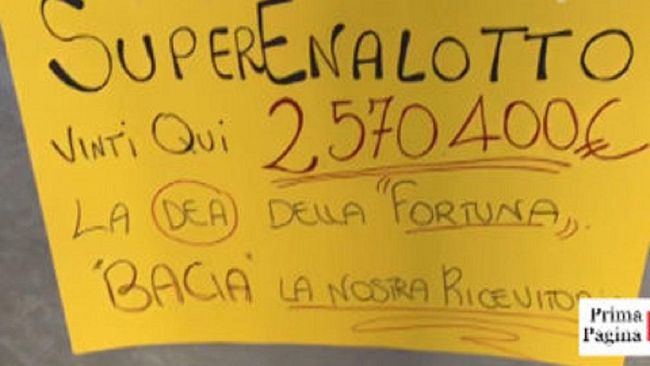 SUPERENALOTTO
VINTI QUI 2570400€
LA DEA DELLA "FORTUNA„
"BACIA" LA NOSTRA
Prima
Pagina